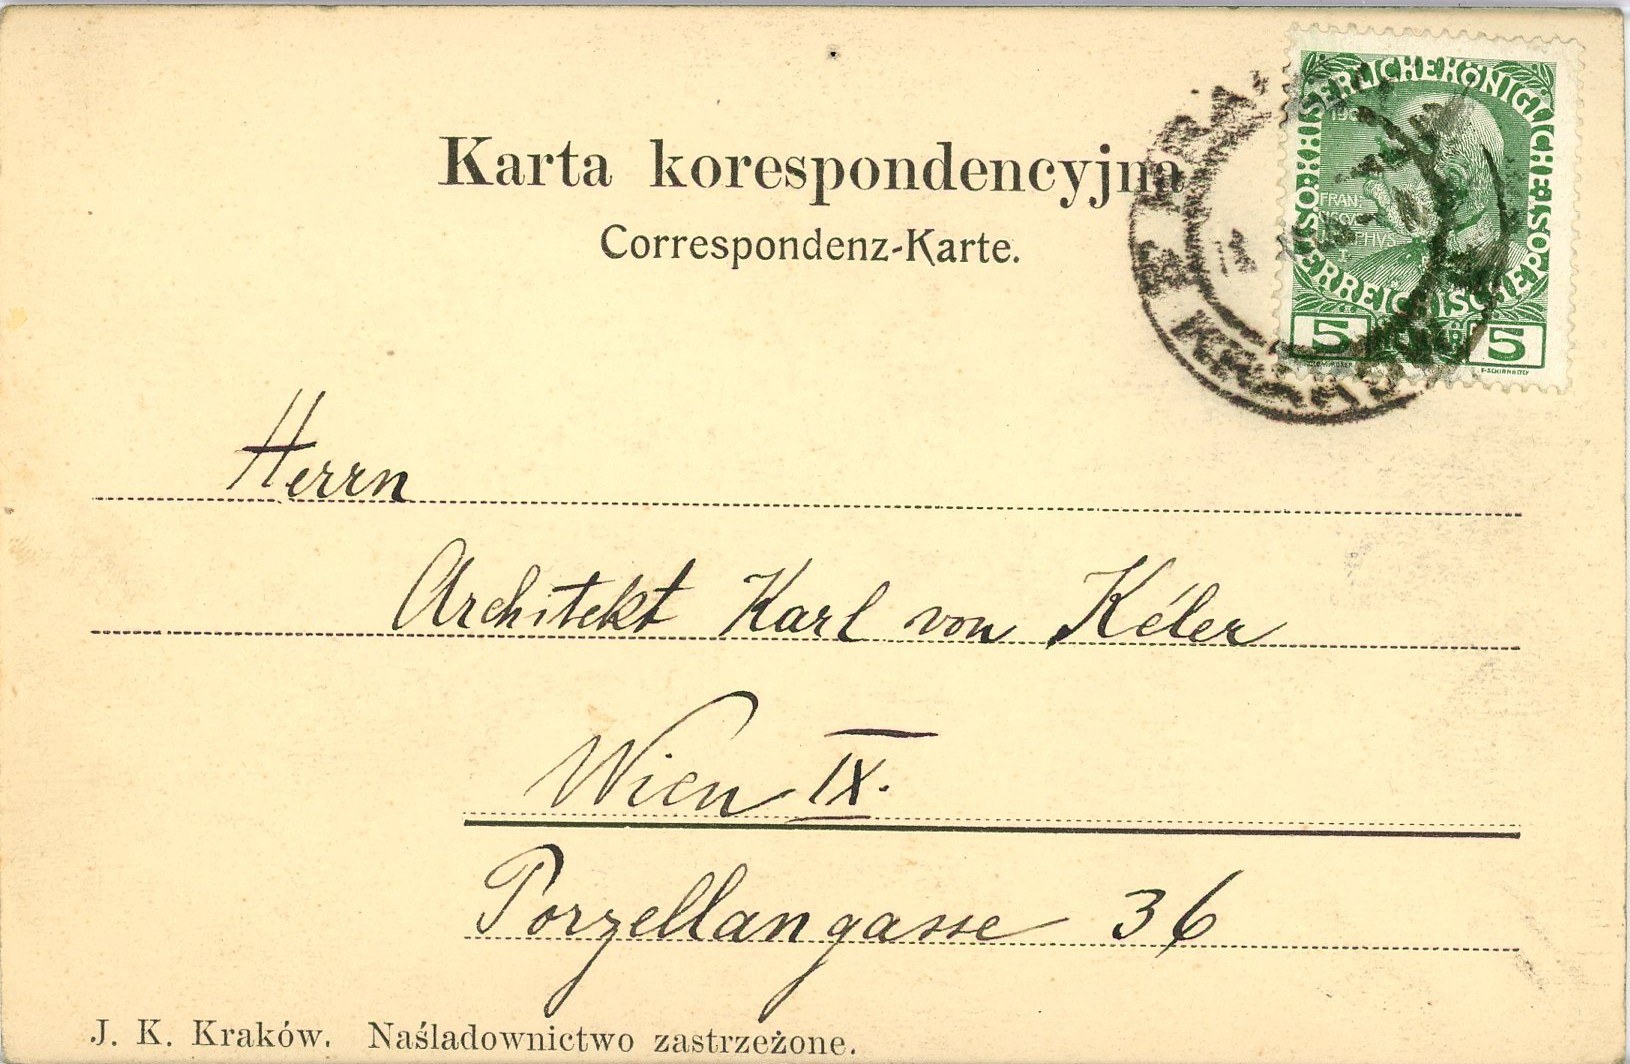 Karta korespondencyjna
Correspondenz-Karte.
KAISERLICHE KÖNIGLICHE
ÖSTERREICHISCHE POST
5 5
KRAKÓW
Herrn
Architekt Karl von Kéler
Wien IX.
Porzellangasse 36
J. K. Kraków. Naśladownictwo zastrzeżone.